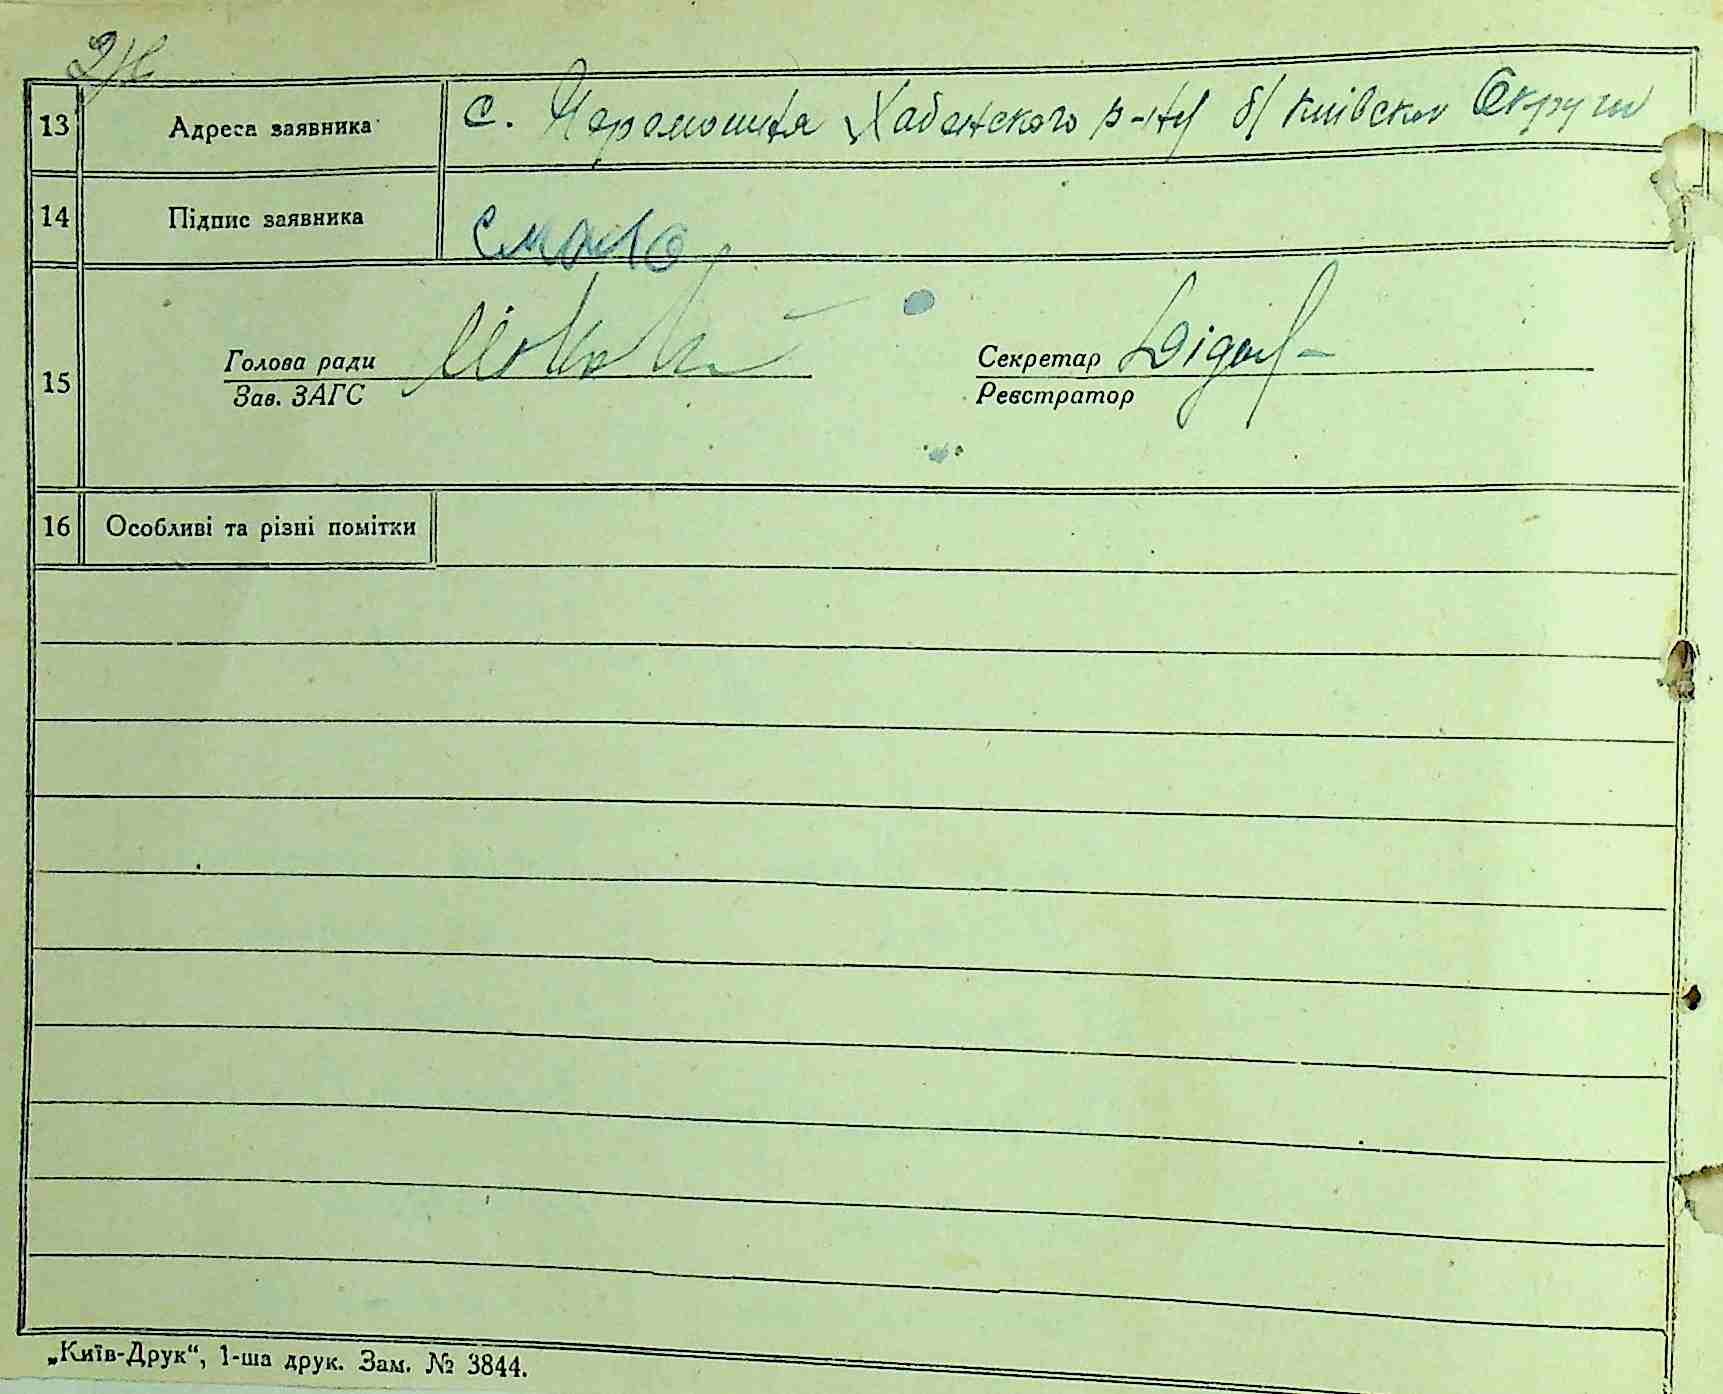 13 Адреса заявника с. Черемошня Хабенского р-ну б/ Київскои Округи
14 Підпис заявника
15
Голова ради Секретар
Зав. ЗАГС Реєстратор
16 Особливі та різні помітки
„Київ-Друк“, 1-ша друк. Зам. № 3844.